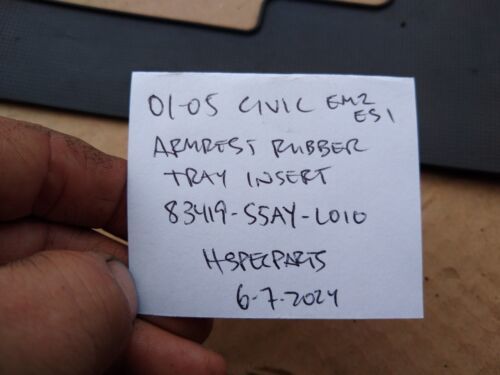 01-05 CIVIC EM2
ES1
ARMREST RUBBER
TRAY INSERT
83419-S5AY-L010
HSPECPARTS
6-7-2024